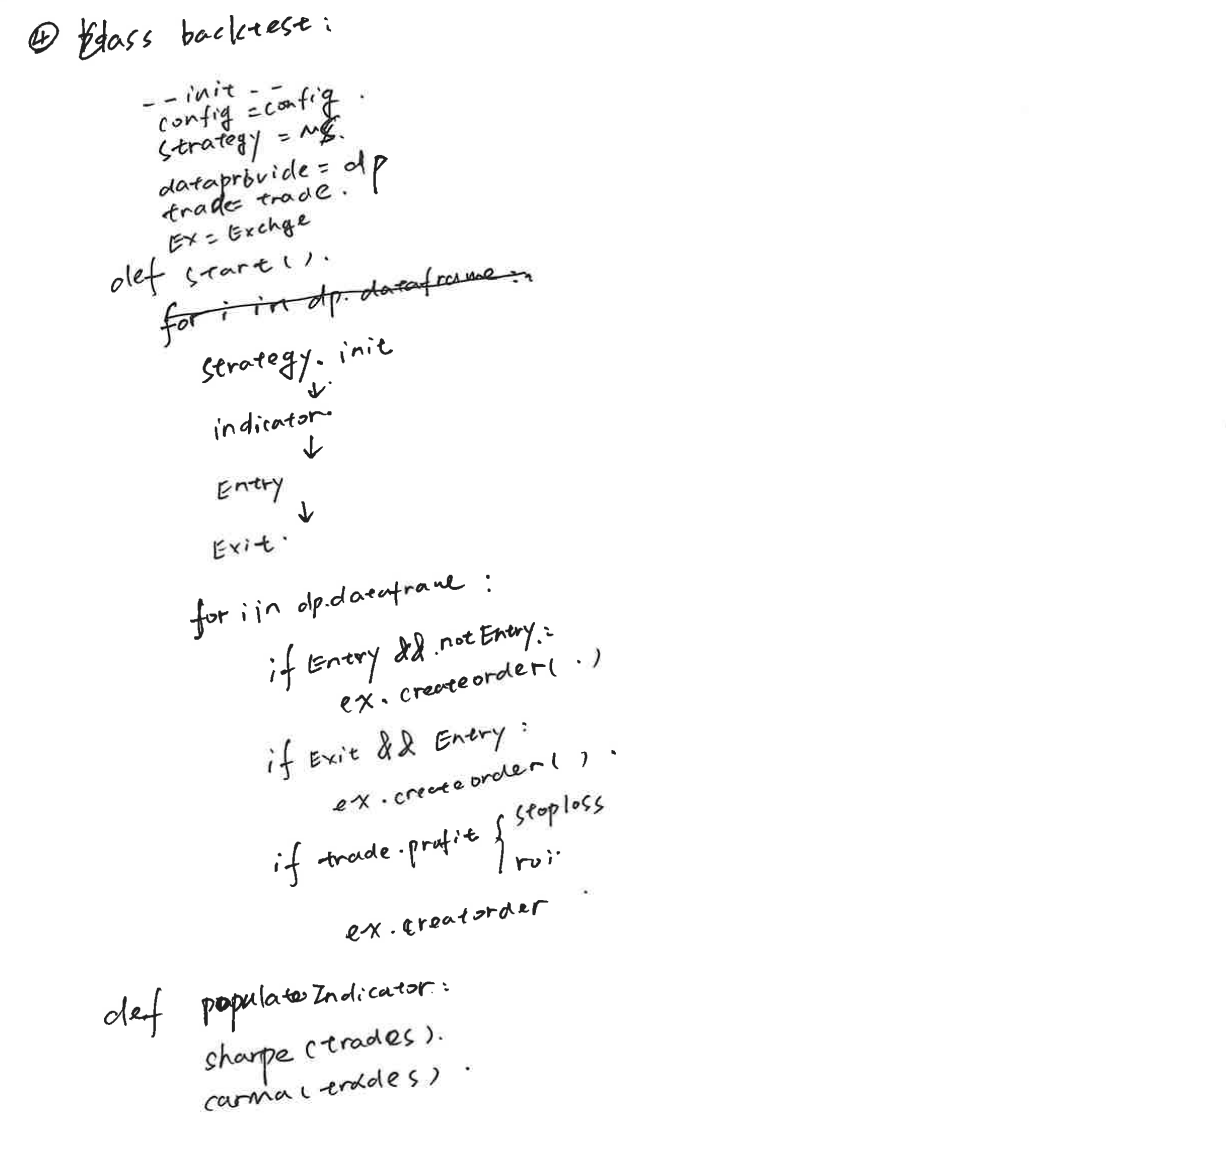 ④ class backtest:
--init--
config = config.
strategy = MS.
dataprovide = dp
trade = trade.
EX = Exchge
def start().
for i in dp.dataframe:
strategy.init
↓
indicator.
↓
Entry
↓
Exit.
for i in dp.dataframe:
if Entry && not Entry:
ex.createorder(.)
if Exit && Entry:
ex.createorder().
if trade.profit { stoploss
roi
ex.creatorder
def populateIndicator:
sharpe(trades).
carma(trades).